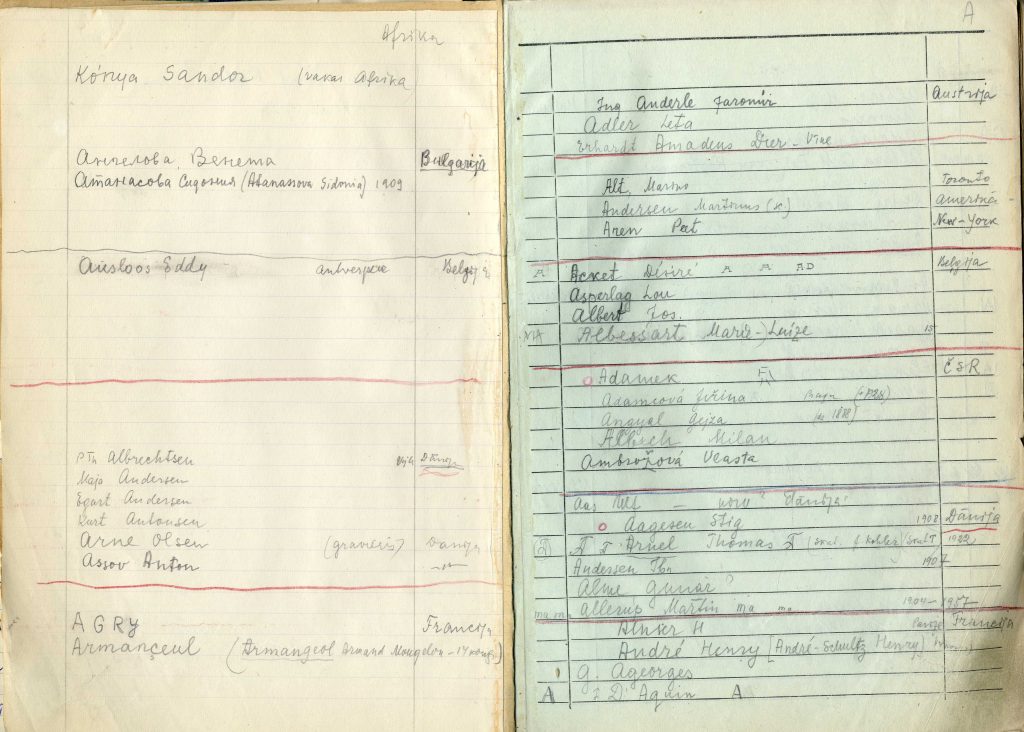 Afrika
Kónya Sandor (vakar Afrika
Ангелова Венета Bulgarija
Атанасова Сидония (Atanassova Sidonia) 1909
Ausloos Eddy Belgija
Albrechtsen
Kajo Andersen
Egart Andersen
Kurt Antonsen
Arne Olsen Danija
Assov Anton
AGRY Francija
Armançeul (Armangeol Armand Mongelon - 14 kongr.)
A
Ing Anderle Jaromir Austrija
Adler Leta
Erhardt Amadeus Dier - Vine
Alt. Marino Toronto
Andersen Martinus (sc) Amerika
Aren Pat New-York
A Acket Désiré A A AD Belgija
Asperlag Lou
Albert Jos.
MA Albessart Marie-Luize 15
Adamek ČSR
Adamcová Jiřina
Angyal Gejza
Albich Milan
Ambrožová Vlasta
Danija
Aagesen Stig 1902 Danija
Arnel Thomas 1922
Andersen Ibn 1907
Alme Gunár?
ma ma Allerup Martin ma ma 1904-1957
H Francija
André Henry (André-Schultz Henry)
G. Ageorges
A D'Aguin A